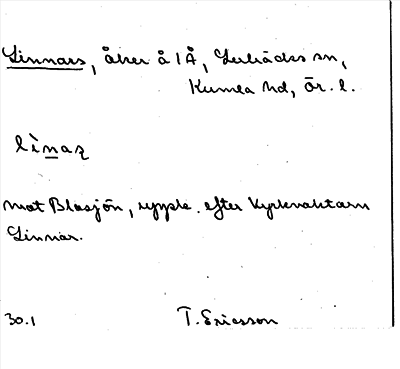 Linnars, åker å 1 Å, Lerbäcks sn,
Kumla hd, Ör. l.
lìnaʂ
mot Blasjön, uppk. efter kyrkvaktarn
Linnar.
30.1 T. Ericsson